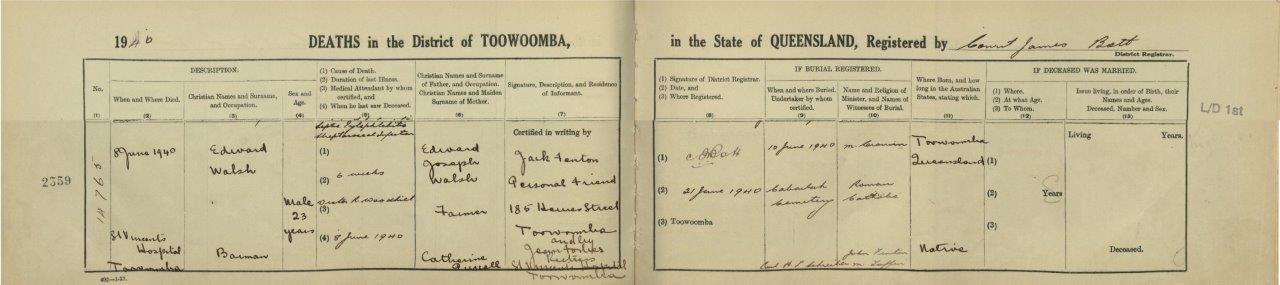 1940
DEATHS in the District of TOOWOOMBA,
in the State of QUEENSLAND, Registered by
James
District Registrar.
No.
(1)
DESCRIPTION.
When and Where Died.
(2)
Christian Names and Surname,
and Occupation.
(3)
Sex and
Age.
(4)
(1) Cause of Death.
(2) Duration of last Illness.
(3) Medical Attendant by whom
certified, and
(4) When he last saw Deceased.
(5)
Christian Names and Surname
of Father, and Occupation.
Christian Names and Maiden
Surname of Mother.
(6)
Signature, Description, and Residence
of Informant.
(7)
(1) Signature of District Registrar.
(2) Date, and
(3) Where Registered.
(8)
IF BURIAL REGISTERED.
When and where Buried.
Undertaker by whom
certified.
(9)
Name and Religion of
Minister, and Names of
Witnesses of Burial.
(10)
Where Born, and how
long in the Australian
States, stating which.
(11)
IF DECEASED WAS MARRIED.
(1) Where.
(2) At what Age.
(3) To Whom.
(12)
Issue living, in order of Birth, their
Names and Ages.
Deceased, Number and Sex.
(13)
L/D 1st
2359
8 June 1940
St Vincent's
Hospital
Toowoomba
Edward
Walsh
Barman
Male
23
years
(1)
(2) 6 weeks
(3)
(4) 8 June 1940
Edward
Joseph
Walsh
Farmer
Catherine
Certified in writing by
Jack Fenton
Personal Friend
Street
Toowoomba
and by
St Vincents Hospital
Toowoomba
(1)
(2) 21 June 1940
(3) Toowoomba
10 June 1940
Cemetery
Roman
Catholic
John Fenton
Toowoomba
Queensland
Native
(1)
(2) Years
(3)
Living Years.
Deceased.